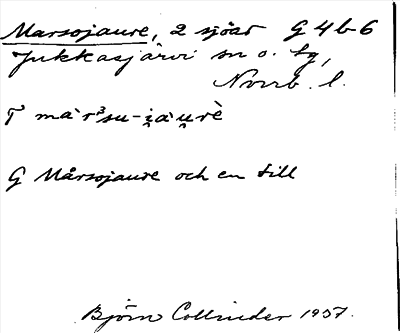 Marsojaure, 2 sjöar G 4 b-6
Jukkasjärvi sn o. tg,
Norrb. l.
T màrˀsu-i̯àu̯rè
G Mårsojaure och en till
Björn Collinder 1957.